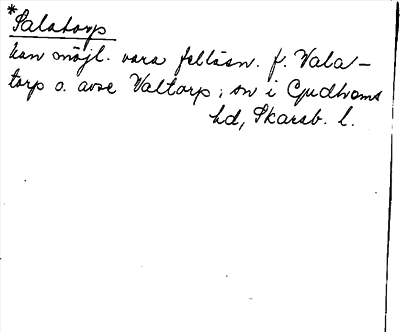 *Salatorp
kan möjl. vara felläsn. f. Vala-
torp o. avse Valtorp; sn i Gudhems
hd, Skarab. l.